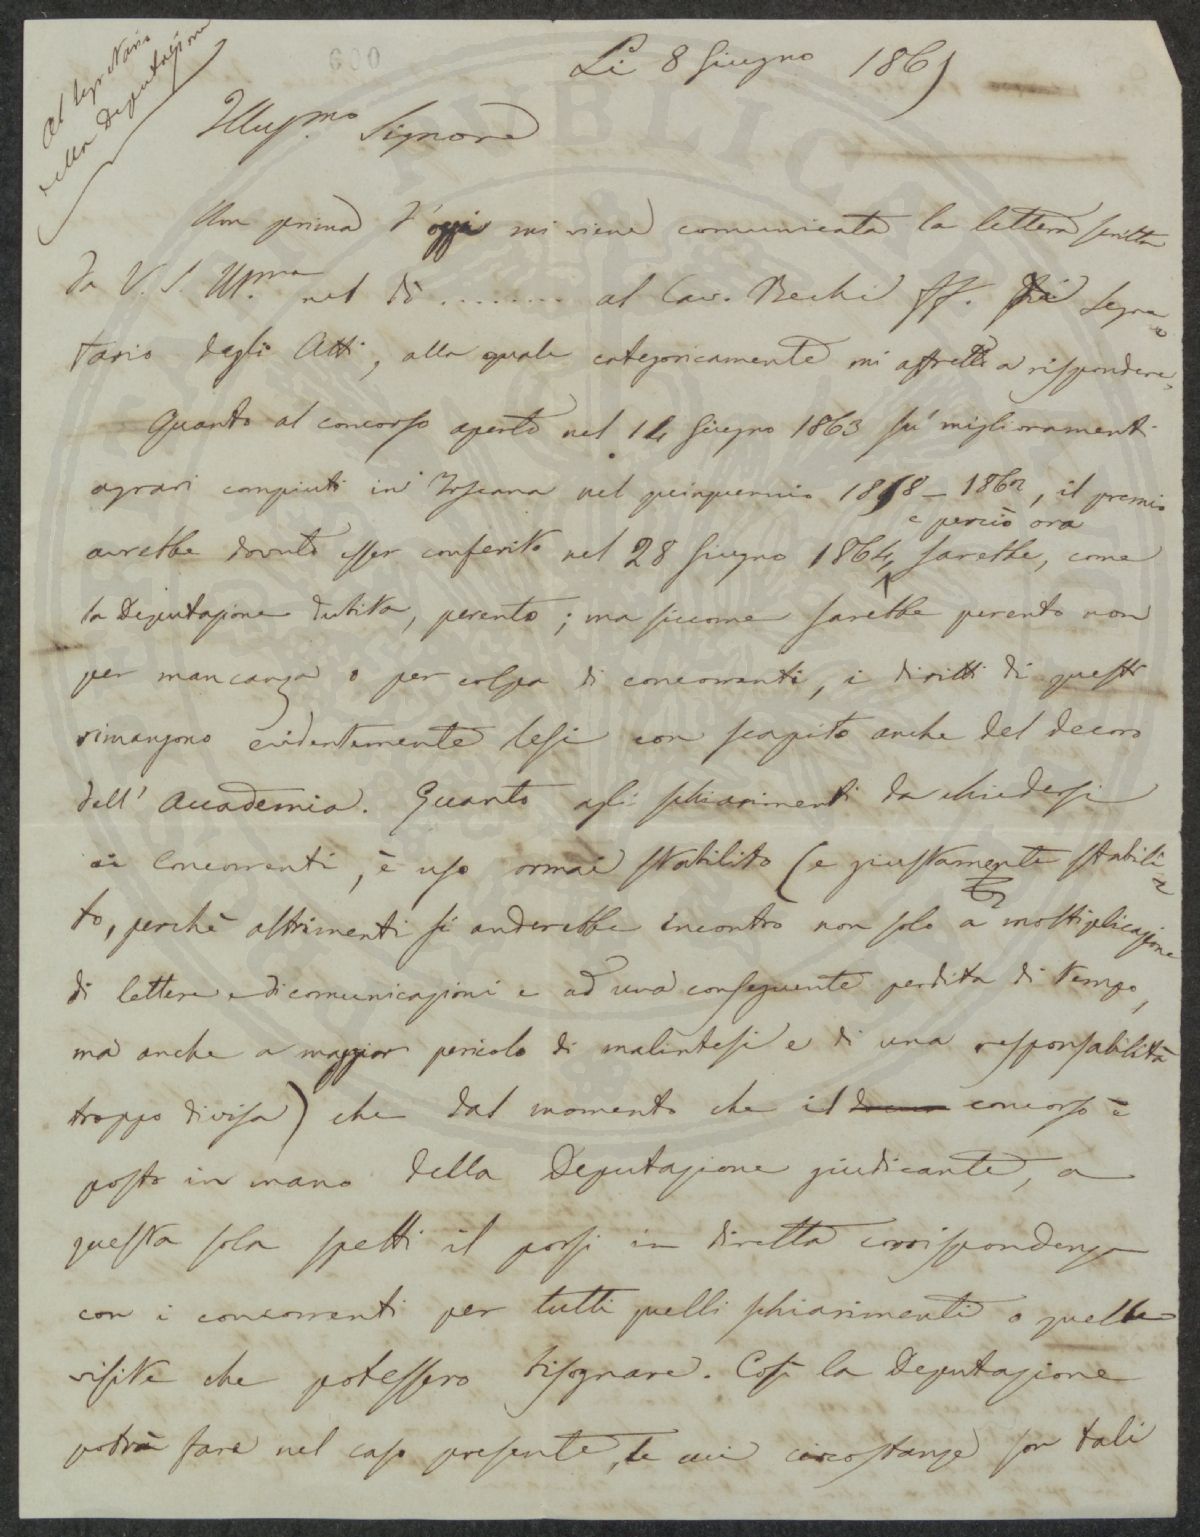 Al Segretario
della Deputazione
600
Li 8 Giugno 1865
Illusmo Signore
Um prima d'oggi mi viene comunicata la lettera scritta
da V. S. Illma nel dì ........ al Cav. Bechi ff. di Segre=
tario degli Atti, alla quale categoricamente mi affretto a rispondere.
Quanto al concorso aperto nel 14 Giugno 1863 su' miglioramenti
agrari compiuti in Toscana nel quinquennio 1858 - 1862, il premio
avrebbe dovuto esser conferito nel 28 Giugno 1864, e perciò ora sarebbe, come
la Deputazione dubita, perento; ma siccome sarebbe perento non
per mancanza o per colpa di concorrenti, i diritti di questi
rimangono evidentemente lesi con scapito anche del decoro
dell' Accademia. Quanto agli schiarimenti da chiedersi
ai Concorrenti, è uso ormai stabilito (e giustamente stabili=
to, perchè altrimenti si anderebbe incontro non solo a moltiplicazione
di lettere e di comunicazioni e ad una conseguente perdita di tempo,
ma anche a maggior pericolo di malintesi e di una responsabilità
troppo divisa) che dal momento che il concorso è
posto in mano della Deputazione giudicante, a
questa sola spetti il porsi in diretta corrispondenza
con i concorrenti per tutti quelli schiarimenti o quelle
visite che potessero bisognare. Così la Deputazione
potrà fare nel caso presente, le cui circostanze son tali